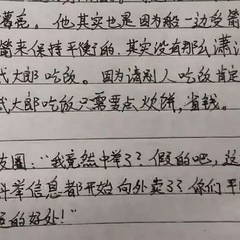 他其实也是因为船一边多菊
来保持平衡的,其实没有那么潇
武大郎吃饭。因为请别人吃饭肯定
武大郎吃饭只需要点炊饼,省钱。
友圈:“我竟然中举了?假的吧,这
科举信息都开始向外卖了?你们平
的好处!”